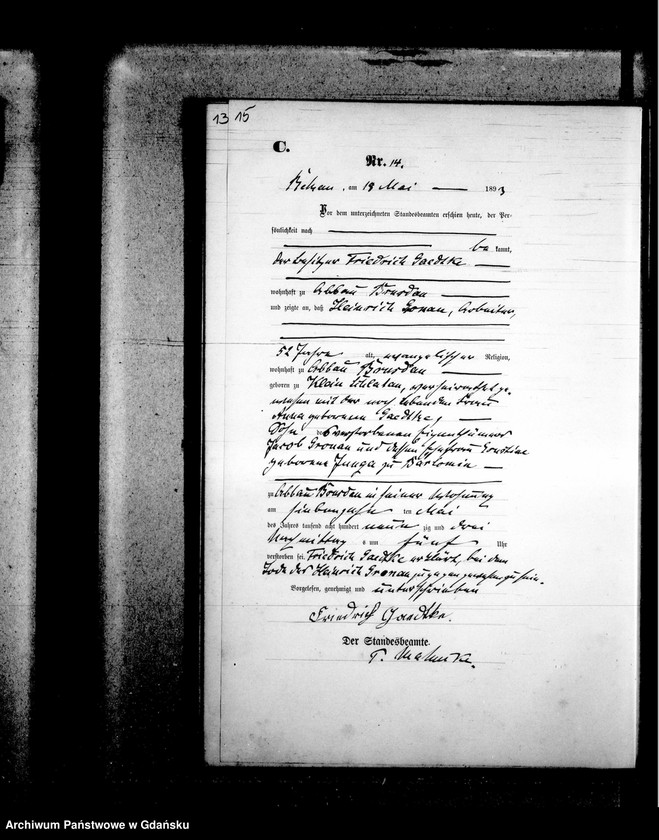 13 15
C.
Nr. 14.
am 18 Mai 1893
Vor dem unterzeichneten Standesbeamten erschien heute, der Per-
sönlichkeit nach
be kannt,
der Besitzer Friedrich Gaedtke
wohnhaft zu Abbau
und zeigte an, daß Heinrich Gronau, Arbeiter,
52 Jahre alt, evangelischer Religion,
wohnhaft zu Abbau
geboren zu Klein verheirathet ge-
wesen mit der noch lebenden Frau
Anna geborenen Gaedtke,
Sohn des verstorbenen Eigenthümers
Jacob Gronau und dessen Ehefrau
geborene zu
zu Abbau in seiner Wohnung
am siebenzehn ten Mai
des Jahres tausend acht hundert neun zig und drei
Nachmittag s um fünf Uhr
verstorben sei. Friedrich Gaedtke erklärt, bei dem
Tode des Heinrich Gronau zugegen gewesen zu sein.
Vorgelesen, genehmigt und unterschrieben
Friedrich Gaedtke.
Der Standesbeamte.
Archiwum Państwowe w Gdańsku